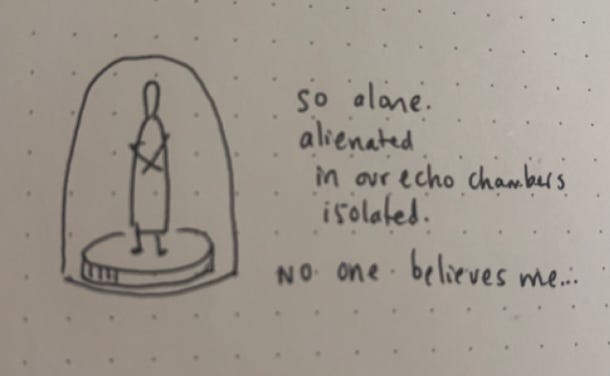 so alone.
alienated
in our echo chambers
isolated.
No one believes me...